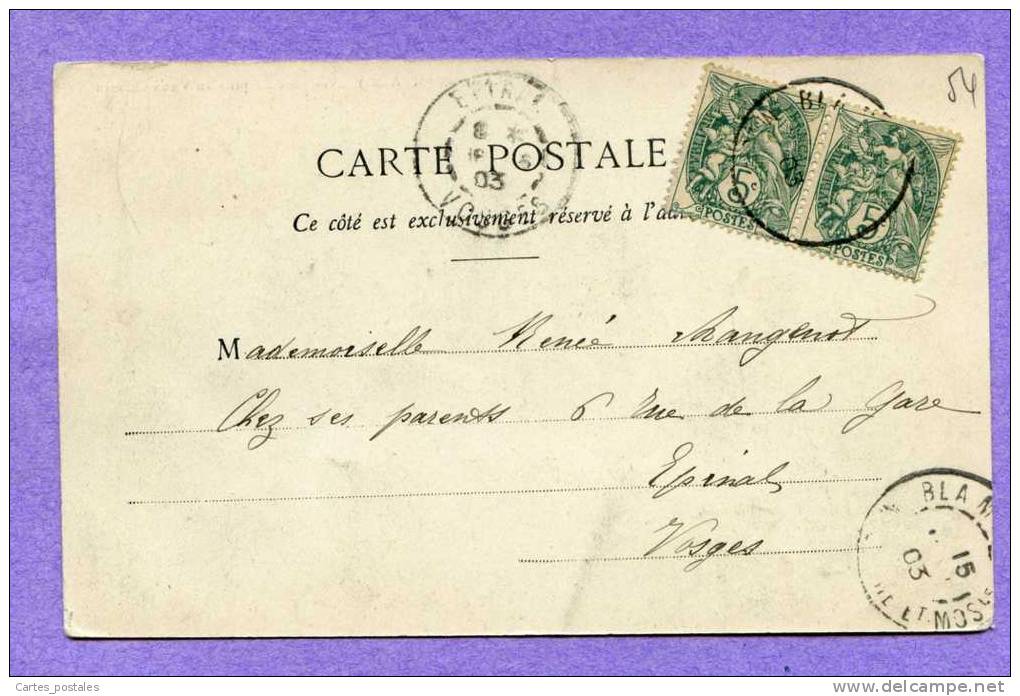 54
CARTE POSTALE
Ce côté est exclusivement réservé à l'ad
8
03
VOSGES
BLA
03
5c
POSTES
5c
POSTES
Mademoiselle Renée Mangenot
Chez ses parents 6 rue de la Gare
Epinal
Vosges
BLA
15
03
ET MOS
Cartes_postales
www.delcampe.net